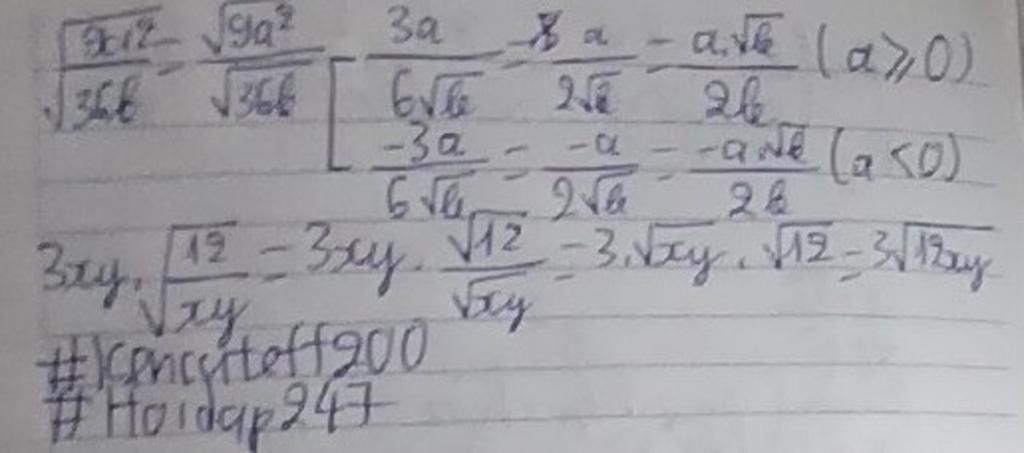 √(9a²/36b) = √9a²/√36b [ 3a/6√b = a/2√b = a.√b/2b (a ⩾ 0)
-3a/6√b = -a/2√b = -a.√b/2b (a < 0)
3xy.√(12/xy) = 3xy.√12/√xy = 3.√xy.√12 = 3√12xy
#Hoidap247